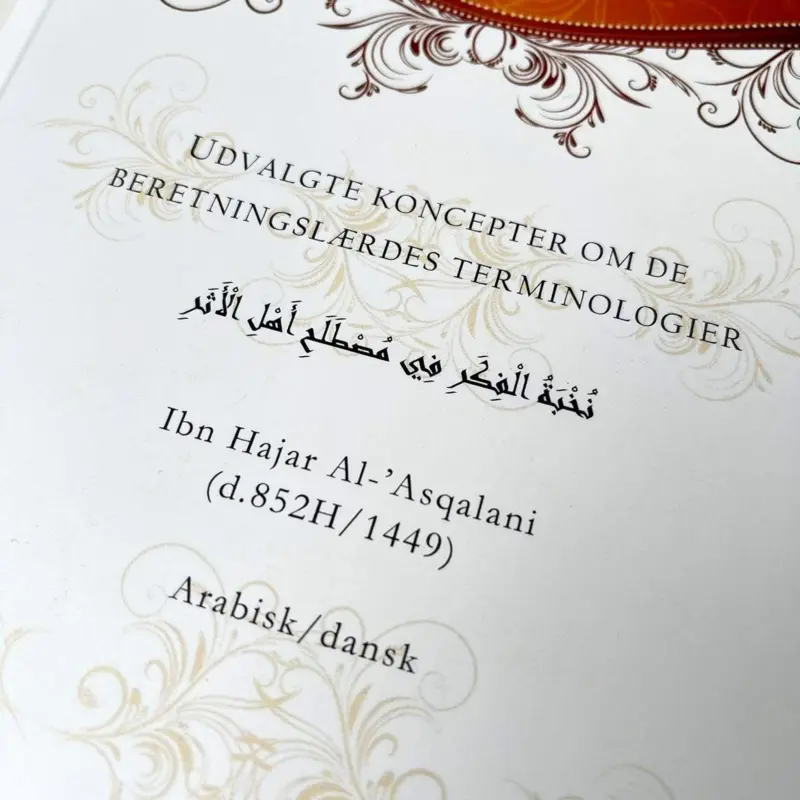 UDVALGTE KONCEPTER OM DE
BERETNINGSLÆRDES TERMINOLOGIER
نُخْبَةُ الْفِكَرِ فِي مُصْطَلَحِ أَهْلِ الْأَثَرِ
Ibn Hajar Al-’Asqalani
(d.852H/1449)
Arabisk/dansk